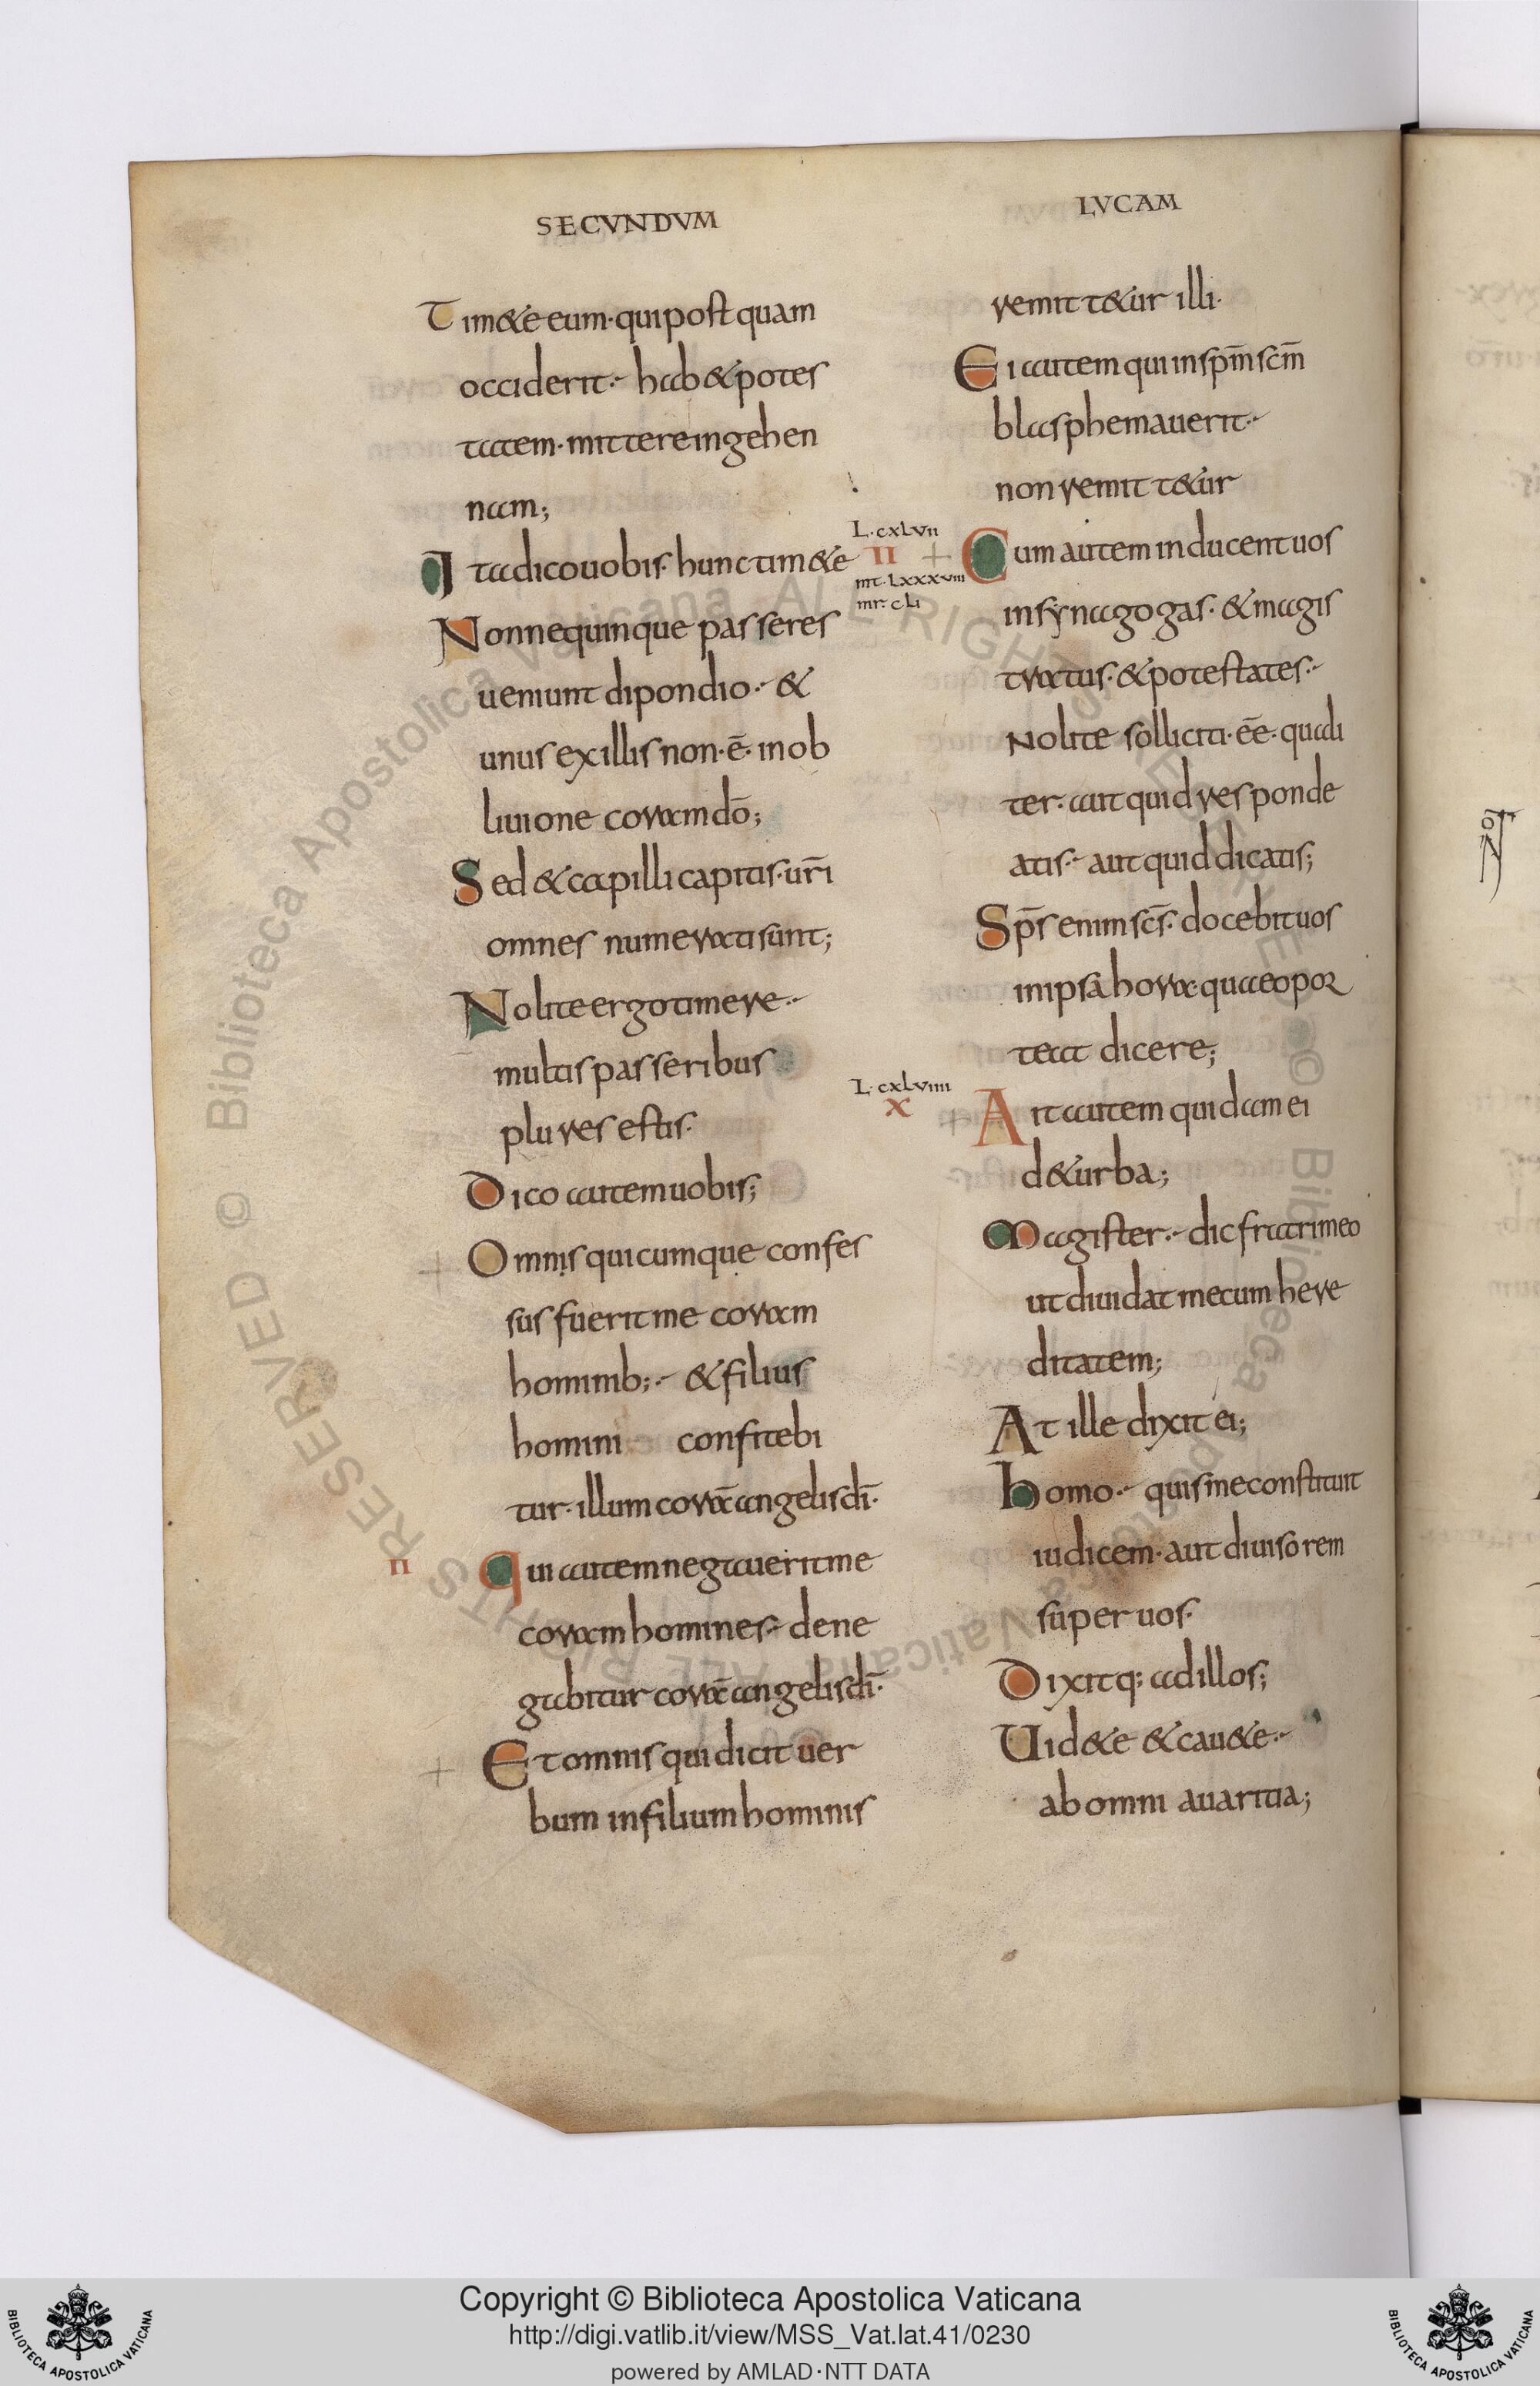 SECVNDVM
Tim&e eum· qui postquam
occiderit·- hab& potes
tatem· mittere in gehen
nam;
Ita dico uobis· hunc tim&e
Nonne quinque passeres
ueniunt dipondio·- &
unus ex illis non· ē· in ob
liuione coram dō;
Sed & capilli capitis· ur̄i
omnes numerati sunt;
Nolite ergo timere·-
multis passeribus
plures estis·
Dico autem uobis;
Omnis quicumque confes
sus fuerit me coram
hominib;·- & filius
homini confitebi
tur· illum corā angelis dī·
II
Qui autem negauerit me
coram homines·- dene
gabitur corā angelis dī·
Et omnis qui dicit uer
bum in filium hominis
LVCAM
remitt&ur illi·
Ei autem qui in sp̄m sc̄m
blasphemauerit·-
non remitt&ur
L·cxLvii
II
mt·Lxxxviii
mr·cli
Cum autem inducent uos
in synagogas· & magis
tratus· & potestates·-
Nolite solliciti· ēe· quali
ter· aut quid responde
atis·- aut quid dicatis;
Sp̄s enim sc̄s· docebit uos
in ipsa hora· quae opor
teat dicere;
L·cxLviiii
X
Ait autem quidam ei
d& urba;
Magister·- dic fratri meo
ut diuidat mecum here
ditatem;
At ille dixit ei;
Homo·- quis me constituit
iudicem· aut diuisorem
super uos·
Dixitq; ad illos;
Uid&e & cau&e·-
ab omni auaritia;
Copyright © Biblioteca Apostolica Vaticana
http://digi.vatlib.it/view/MSS_Vat.lat.41/0230
powered by AMLAD·NTT DATA
BIBLIOTECA APOSTOLICA VATICANA
BIBLIOTECA APOSTOLICA VATICANA
© Biblioteca Apostolica Vaticana ALL RIGHTS RESERVED
© Biblioteca Apostolica Vaticana ALL RIGHTS RESERVED